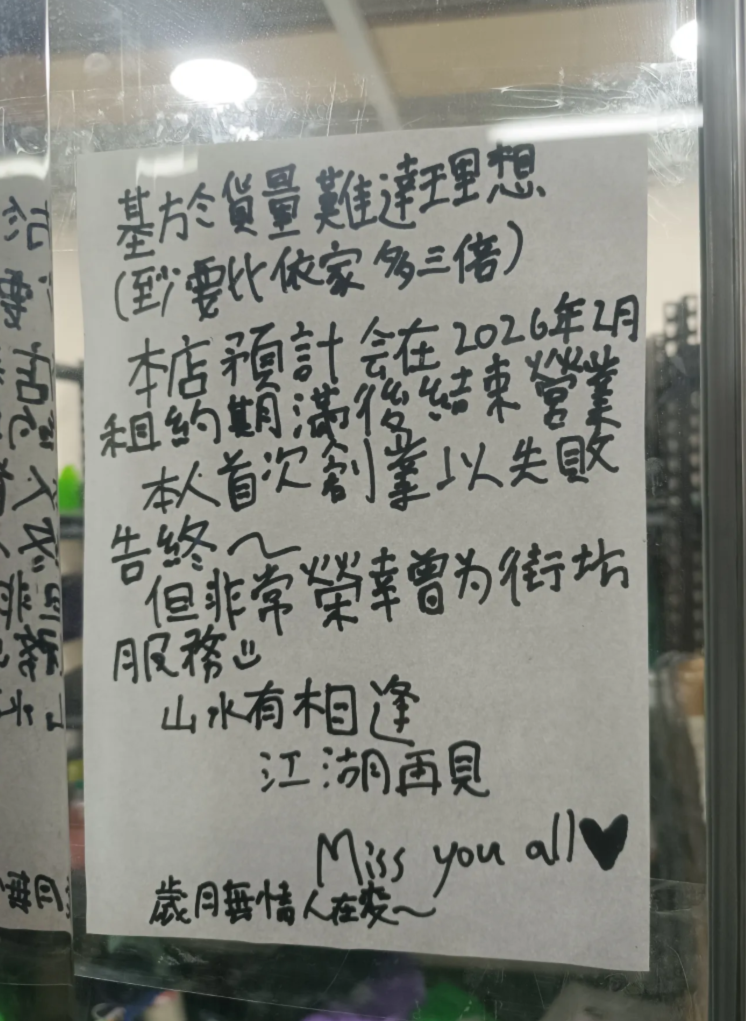 基於貨量難達理想
(到要比依家多三倍)
本店預計会在2026年2月
租約期滿後結束營業
本人首次創業以失敗
告終～
但非常榮幸曾为街坊
服務
山水有相逢
江湖再見
Miss you all♥
歲月無情人在变～